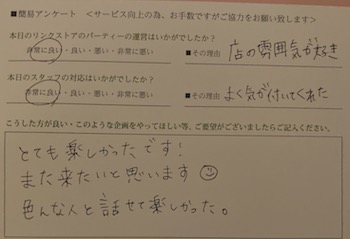 ■簡易アンケート ＜サービス向上の為、お手数ですがご協力をお願い致します＞
本日のリンクストアのパーティーの運営はいかがでしたか？
非常に良い・良い・悪い・非常に悪い ■その理由 店の雰囲気が好き
本日のスタッフの対応はいかがでしたか？
非常に良い・良い・悪い・非常に悪い ■その理由 よく気が付いてくれた
こうした方が良い・このような企画をやってほしい等、ご要望がございましたらご記入ください。
とても楽しかったです！
また来たいと思います
色んな人と話せて楽しかった。